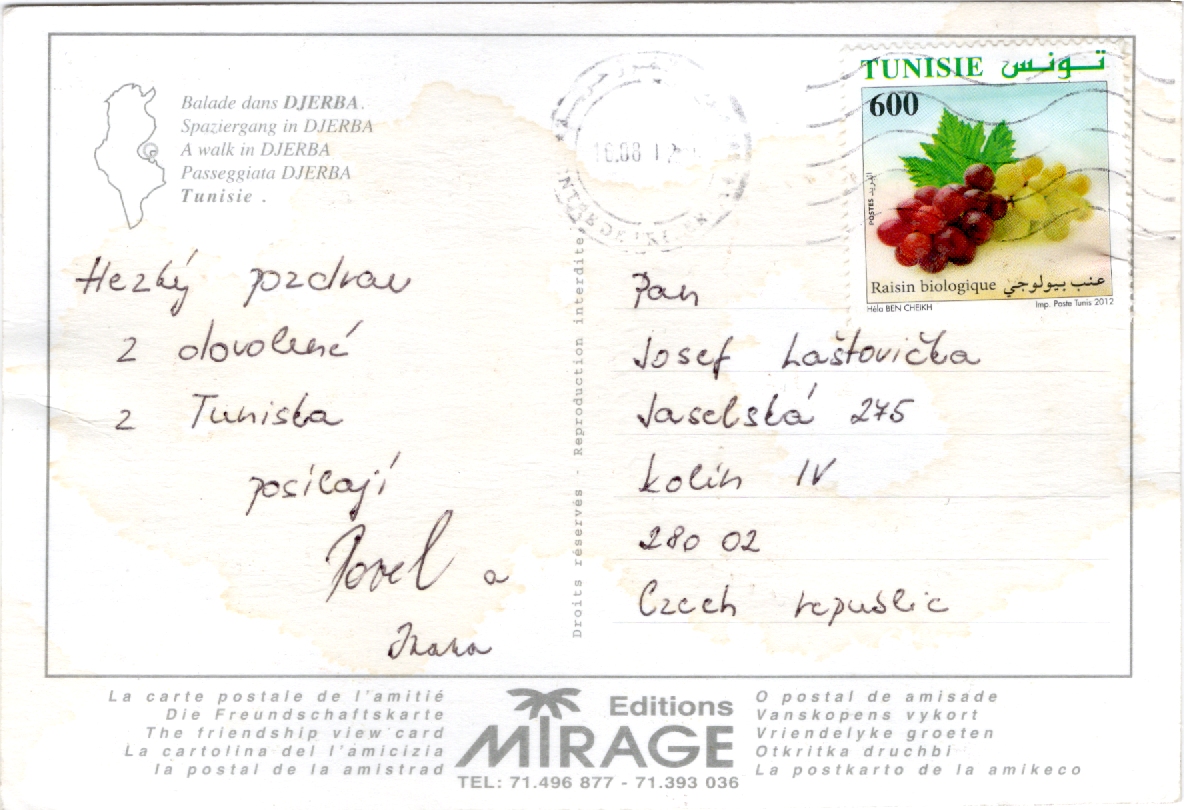 Balade dans DJERBA.
Spaziergang in DJERBA
A walk in DJERBA
Passeggiata DJERBA
Tunisie .
Hezký pozdrav
z dovolené
z Tuniska
posílají
Pavel a
Ivana
Droits réservés - Reproduction interdite
TUNISIE تونس
600
POSTES البريد
Raisin biologique عنب بيولوجي
Héla BEN CHEIKH
Imp. Poste Tunis 2012
Pan
Josef Laštovička
Jaselská 275
Kolín IV
280 02
Czech republic
La carte postale de l'amitié
Die Freundschaftskarte
The friendship view card
La cartolina del l'amicizia
la postal de la amistrad
Editions
MIRAGE
TEL: 71.496 877 - 71.393 036
O postal de amisade
Vanskopens vykort
Vriendelyke groeten
Otkritka druchbi
La postkarto de la amikeco